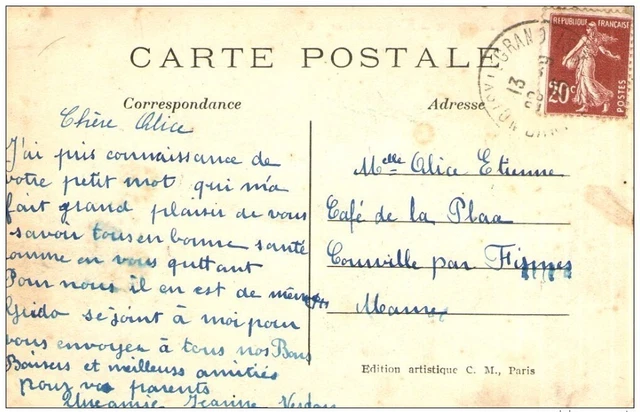 CARTE POSTALE
Correspondance
Adresse
REPUBLIQUE FRANÇAISE
20c
POSTES
Chère Alice
J'ai pris connaissance de
votre petit mot qui m'a
fait grand plaisir de vous
savoir tous en bonne santé
comme en vous quittant
Pour nous il en est de même
Guido se joint à moi pour
vous envoyer à tous nos Bons
Baisers et meilleurs amitiés
pour vos parents
Une amie Jeanine
Melle Alice Etienne
Café de la Plaa
Courville par Fismes
Marne
Edition artistique C. M., Paris